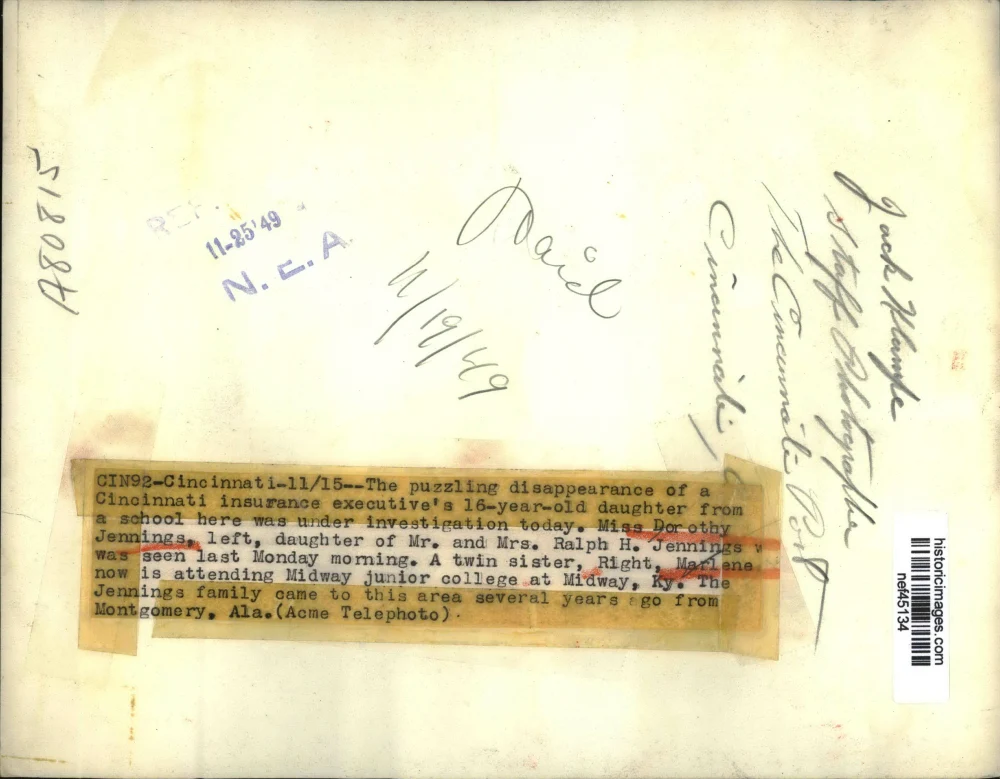 A80815
REF.
11-25'49
N. E. A
Paid
11/19/49
Jack
Staff Photographer
The Cincinnati Post
Cincinnati,
CIN92-Cincinnati-11/15--The puzzling disappearance of a
Cincinnati insurance executive's 16-year-old daughter from
a school here was under investigation today. Miss Dorothy
Jennings, left, daughter of Mr. and Mrs. Ralph H. Jennings w
was seen last Monday morning. A twin sister, Right, Marlene
now is attending Midway junior college at Midway, Ky. The
Jennings family came to this area several years ago from
Montgomery, Ala.(Acme Telephoto).
historicimages.com
nef45134